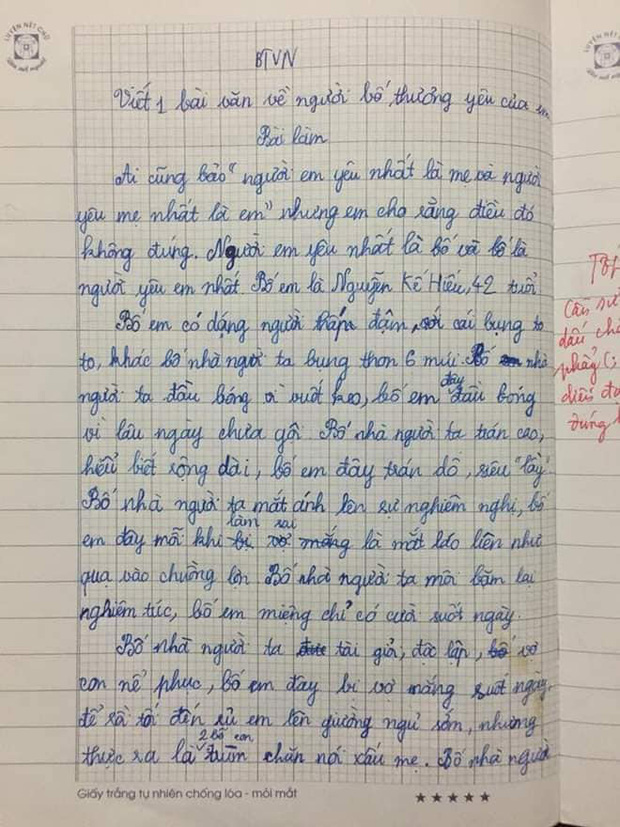 LUYỆN NÉT CHỮ
BTVN
Viết 1 bài văn về người bố thương yêu của em
Bài làm
Ai cũng bảo "người em yêu nhất là mẹ và người
yêu mẹ nhất là em" nhưng em cho rằng điều đó
không đúng. Người em yêu nhất là bố và bố là
người yêu em nhất. Bố em là Nguyễn Kế Hiếu, 42 tuổi
Bố em có dáng người thấp đậm, với cái bụng to
to, khác bố nhà người ta bụng thon 6 múi. Bố nhà
người ta đầu bóng vì vuốt keo, bố em đây đầu bóng
vì lâu ngày chưa gội Bố nhà người ta trán cao,
hiểu biết rộng dài, bố em đây trán dô, siêu "lầy"
Bố nhà người ta mắt ánh lên sự nghiêm nghị, bố
em đây mỗi khi làm sai là mắt láo liên như
qua vào chuồng lợn Bố nhà người ta môi bặm lại
nghiêm túc, bố em miệng chỉ có cười suốt ngày.
Bố nhà người ta tài giỏi, độc lập, vợ
con nể phục, bố em đây bị vợ mắng suốt ngày,
để rồi tối đến rủ em lên giường ngủ sớm, nhưng
thực ra là 2 bố con trùm chăn nói xấu mẹ. Bố nhà người
Giấy trắng tự nhiên chống lóa - mỏi mắt
Cần sử
dấu
phẩy (,
diễn đạ
đúng